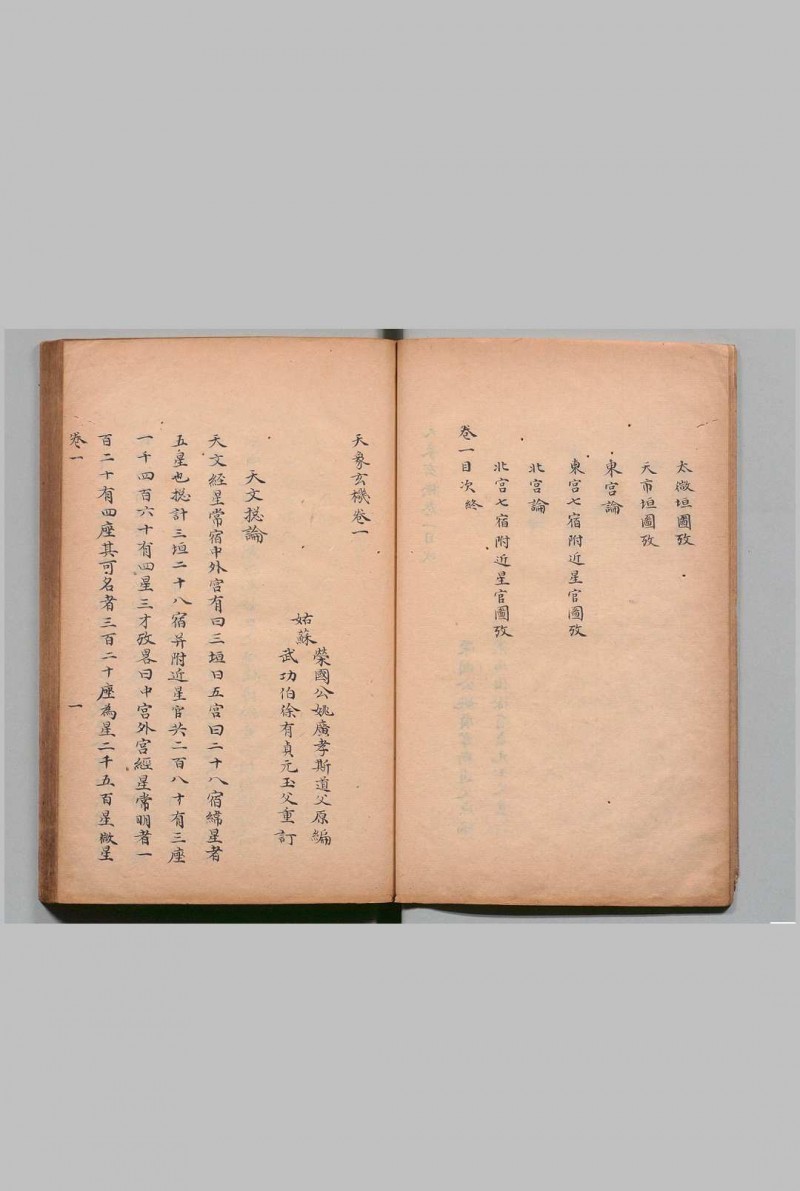 太微垣圖攷
天市垣圖攷
東宮論
東宮七宿附近星官圖攷
北宮論
北宮七宿附近星官圖攷
卷一目次終
天象玄機卷一
姑蘇
榮國公姚廣孝斯道父原編
武功伯徐有貞元玉父重訂
天文捴論
天文經星常宿中外宮有曰三垣曰五宮曰二十八宿緯星者
五星也捴計三垣二十八宿并附近星官共二百八十有三座
一千四百六十有四星三才攷畧曰中宮外宮經星常明者一
百二十有四座其可名者三百二十座為星二千五百星微星
卷一
一